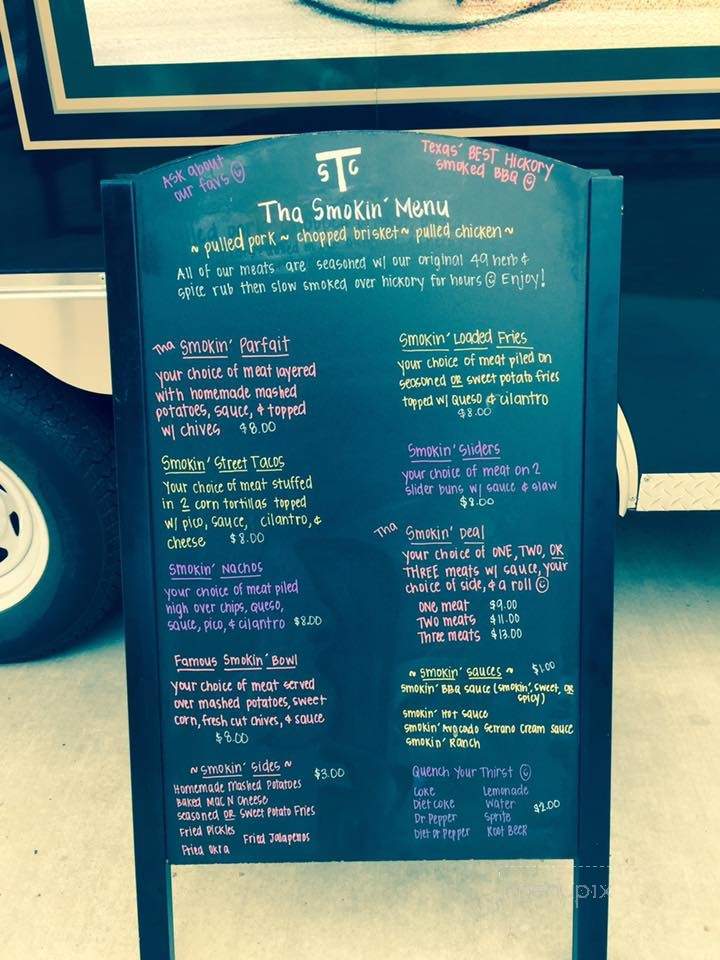 Ask about
our favs
STC
Texas' BEST Hickory
smoked BBQ
Tha Smokin' Menu
~ pulled pork ~ chopped brisket ~ pulled chicken ~
All of our meats are seasoned w/ our original 49 herb &
spice rub then slow smoked over hickory for hours Enjoy!
Tha Smokin' Parfait
your choice of meat layered
with homemade mashed
potatoes, sauce, & topped
w/ chives $8.00
Smokin' Street Tacos
Your choice of meat stuffed
in 2 corn tortillas topped
w/ pico, sauce, cilantro, &
cheese $8.00
Smokin' Nachos
your choice of meat piled
high over chips, queso,
sauce, pico, & cilantro $8.00
Famous Smokin' Bowl
your choice of meat served
over mashed potatoes, sweet
corn, fresh cut chives, & sauce
$8.00
~ smokin' sides ~ $3.00
Homemade Mashed Potatoes
Baked Mac N Cheese
seasoned OR Sweet Potato Fries
Fried Pickles
Fried Jalapenos
Fried Okra
Smokin' Loaded Fries
your choice of meat piled on
seasoned OR sweet potato fries
topped w/ queso & cilantro
$8.00
Smokin' Sliders
your choice of meat on 2
slider buns w/ sauce & slaw
$8.00
Tha Smokin' Deal
your choice of ONE, TWO, OR
THREE meats w/ sauce, your
choice of side, & a roll
one meat $9.00
Two meats $11.00
Three meats $13.00
~ smokin' sauces ~ $1.00
smokin' BBQ sauce (smokin', sweet, OR
spicy)
smokin' Hot sauce
smokin' Avocado Serrano Cream sauce
smokin' Ranch
Quench Your Thirst
Coke Lemonade
Diet Coke Water $2.00
Dr. Pepper Sprite
Diet Dr Pepper Root Beer
menupix